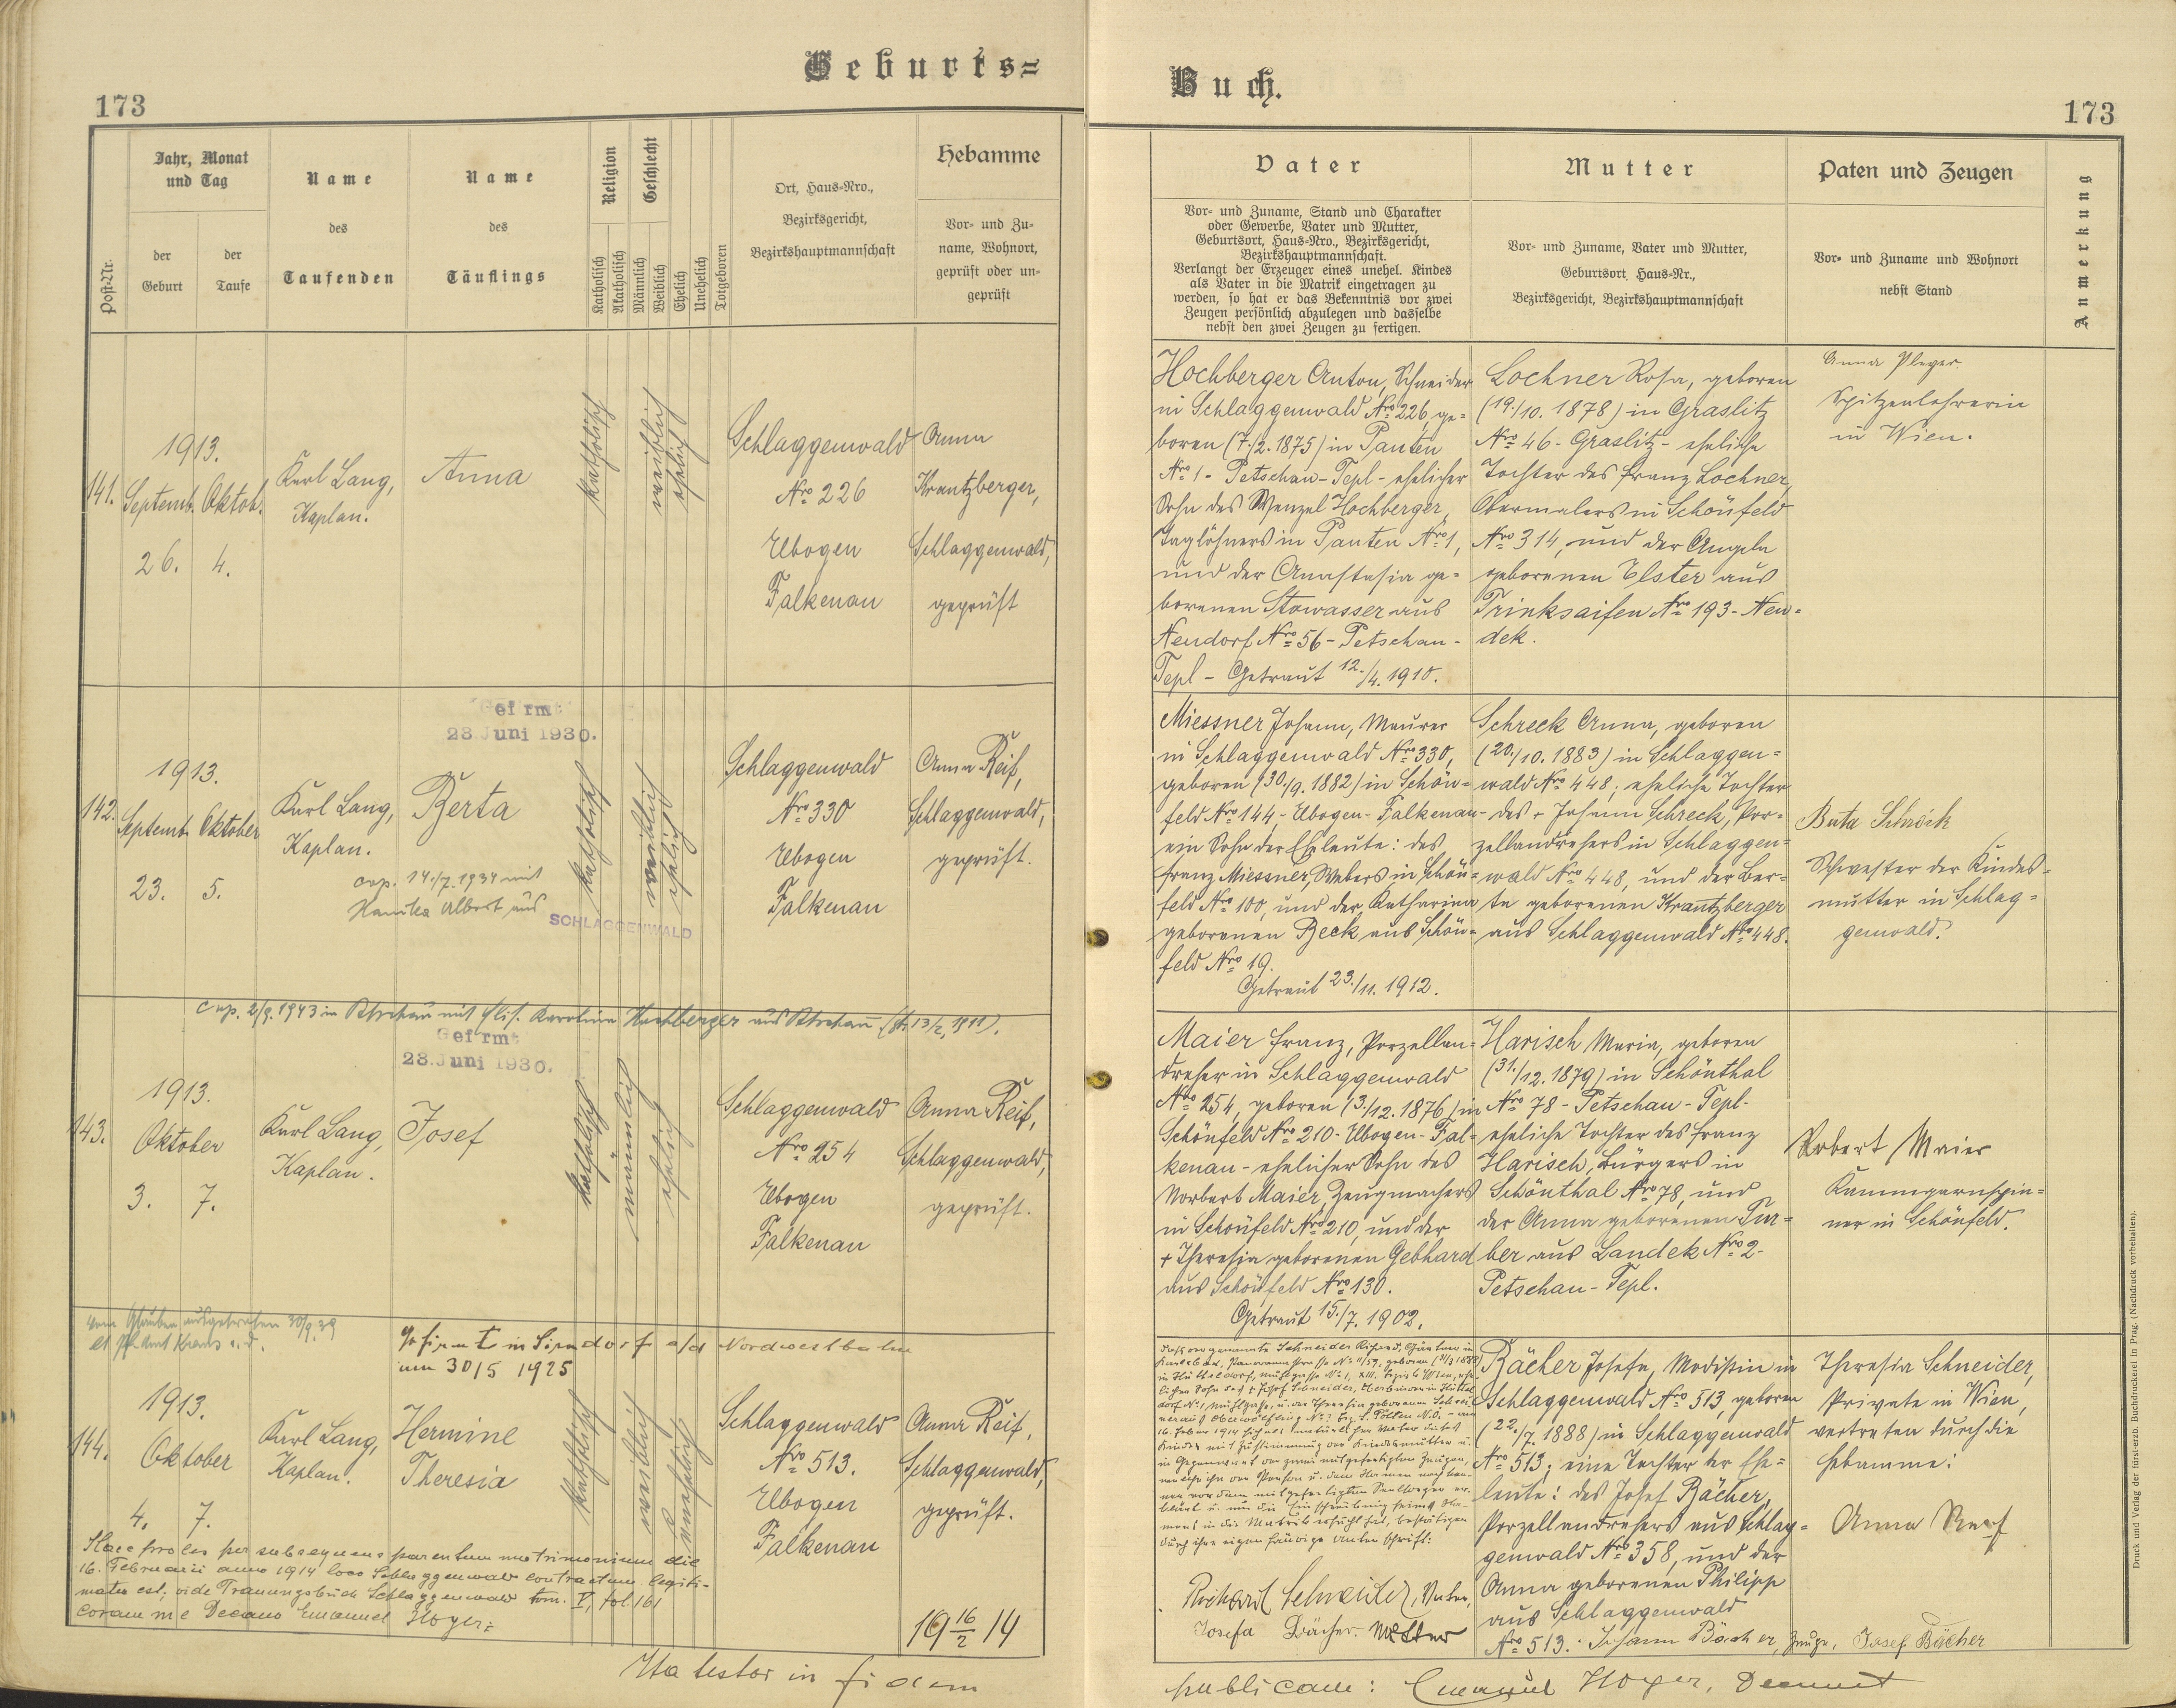 Geburts=
173
Jahr, Monat
und Tag
der
Geburt
der
Taufe
Post-Nr.
Name
des
Taufenden
Name
des
Täuflings
Religion
Katholisch
Akatholisch
Geschlecht
Männlich
Weiblich
Ehelich
Unehelich
Totgeboren
Ort, Haus-Nro.,
Bezirksgericht,
Bezirkshauptmannschaft
Hebamme
Vor- und Zu-
name, Wohnort,
geprüft oder un-
geprüft
141.
1913.
Septemb. Oktob.
26. 4.
Karl Lang,
Kaplan.
Anna
katholisch
weiblich
ehelich
Schlaggenwald
Nro 226
Elbogen
Falkenau
Anna
Krantzberger,
Schlaggenwald,
geprüft
Gefirmt
28. Juni 1930.
142.
1913.
Septemb. Oktober
23. 5.
Karl Lang,
Kaplan.
Berta
cop. 14./7. 1934 mit
Hanika Albert aus
SCHLAGGENWALD
katholisch
weiblich
ehelich
Schlaggenwald
Nro 330
Elbogen
Falkenau
Anna Reif,
Schlaggenwald,
geprüft.
cop. 2/9. 1943 in Petschau mit Elis. Karolina Hochberger aus Petschau
Gefirmt
28. Juni 1930.
143.
1913.
Oktober
3. 7.
Karl Lang,
Kaplan.
Josef
katholisch
männlich
ehelich
Schlaggenwald
Nro 254
Elbogen
Falkenau
Anna Reif,
Schlaggenwald,
geprüft.
vom Glauben ausgetreten 30/9. 39
Gefirmt in Sierndorf a/d Nordwestbahn
am 30/5 1925
144.
1913.
Oktober
4. 7.
Karl Lang,
Kaplan.
Hermine
Theresia
katholisch
weiblich
unehelich
Schlaggenwald
Nro 513.
Elbogen
Falkenau
Anna Reif,
Schlaggenwald,
geprüft.
Haec proles per subsequens parentum matrimonium die
16. Februarii anno 1914 loco Schlaggenwald contractum legiti-
mata est; vide Trauungsbuch Schlaggenwald tom. V, fol 161
coram me Decano Emanuel Hoyer:
19 16/2 14
Ita testor in fidem
Buch.
173
Vater
Vor- und Zuname, Stand und Charakter
oder Gewerbe, Vater und Mutter,
Geburtsort, Haus-Nro., Bezirksgericht,
Bezirkshauptmannschaft.
Verlangt der Erzeuger eines unehel. Kindes
als Vater in die Matrik eingetragen zu
werden, so hat er das Bekenntnis vor zwei
Zeugen persönlich abzulegen und dasselbe
nebst den zwei Zeugen zu fertigen.
Mutter
Vor- und Zuname, Vater und Mutter,
Geburtsort, Haus-Nr.,
Bezirksgericht, Bezirkshauptmannschaft
Paten und Zeugen
Vor- und Zuname und Wohnort
nebst Stand
Anmerkung
Hochberger Anton, Schneider
in Schlaggenwald Nro 226, ge=
boren (7./2. 1875) in Pauten
Nro 1 - Petschau - Tepl - ehelicher
Sohn des Wenzel Hochberger,
Taglöhners in Pauten Nro 1,
und der Anastasia ge=
borenen Stowasser aus
Neudorf Nro 56 - Petschau -
Tepl - Getraut 12./4. 1910.
Lochner Rosa, geboren
(19./10. 1878) in Graslitz
Nro 46 - Graslitz - eheliche
Tochter des Franz Lochner,
Obermalers in Schönfeld
Nro 314, und der Angela
geborenen Elster aus
Trinksaifen Nro 193 - Neu=
dek.
Anna Pleyer.
Spitzenlehrerin
in Wien.
Miessner Johann, Maurer
in Schlaggenwald Nro 330,
geboren (30./9. 1882) in Schön=
feld Nro 144, - Elbogen - Falkenau -
ein Sohn der Eheleute: des
Franz Miessner, Webers in Schön=
feld Nro 100, und der Katharina
geborenen Beck aus Schön=
feld Nro 19.
Getraut 23./11. 1912.
Schreck Anna, geboren
(20./10. 1883) in Schlaggen=
wald Nro 448; eheliche Tochter
des + Johann Schreck, Por=
zellandrehers in Schlaggen=
wald Nro 448, und der Ber=
ta geborenen Krantzberger
aus Schlaggenwald Nro 448.
Berta Schreck
Schwester der Kindes=
mutter in Schlag=
genwald.
Maier Franz, Porzellan=
dreher in Schlaggenwald
Nro 254, geboren (3./12. 1876) in
Schönfeld Nro 210 - Elbogen - Fal=
kenau - ehelicher Sohn des
Norbert Maier, Zeugmachers
in Schönfeld Nro 210, und der
+ Theresia geborenen Gebhard
aus Schönfeld Nro 130.
Getraut 15./7. 1902.
Harisch Maria, geboren
(31./12. 1879) in Schönthal
Nro 78 - Petschau - Tepl -
eheliche Tochter des Franz
Harisch, Bürgers in
Schönthal Nro 78, und
der Anna geborenen Fur=
ber aus Landek Nro 2 -
Petschau - Tepl.
Robert Maier
Kammgarnspin=
ner in Schönfeld.
Richard Schneider, Vater,
Josefa Bächer. Mutter
Bächer Josefa, Modistin in
Schlaggenwald Nro 513, geboren
(22./7. 1888) in Schlaggenwald
Nro 513; eine Tochter der Ehe=
leute: des Josef Bächer,
Porzellandrehers aus Schlag=
genwald Nro 358, und der
Anna geborenen Philipp
aus Schlaggenwald
Nro 513. Johann Bächer, Zeuge, Josef Bächer
Theresia Schneider,
Private in Wien,
vertreten durch die
Hebamme:
Anna Reif
publicam: Emanuel Hoyer, Dechant
Druck und Verlag der fürst-erzb. Buchdruckerei in Prag. (Nachdruck vorbehalten).